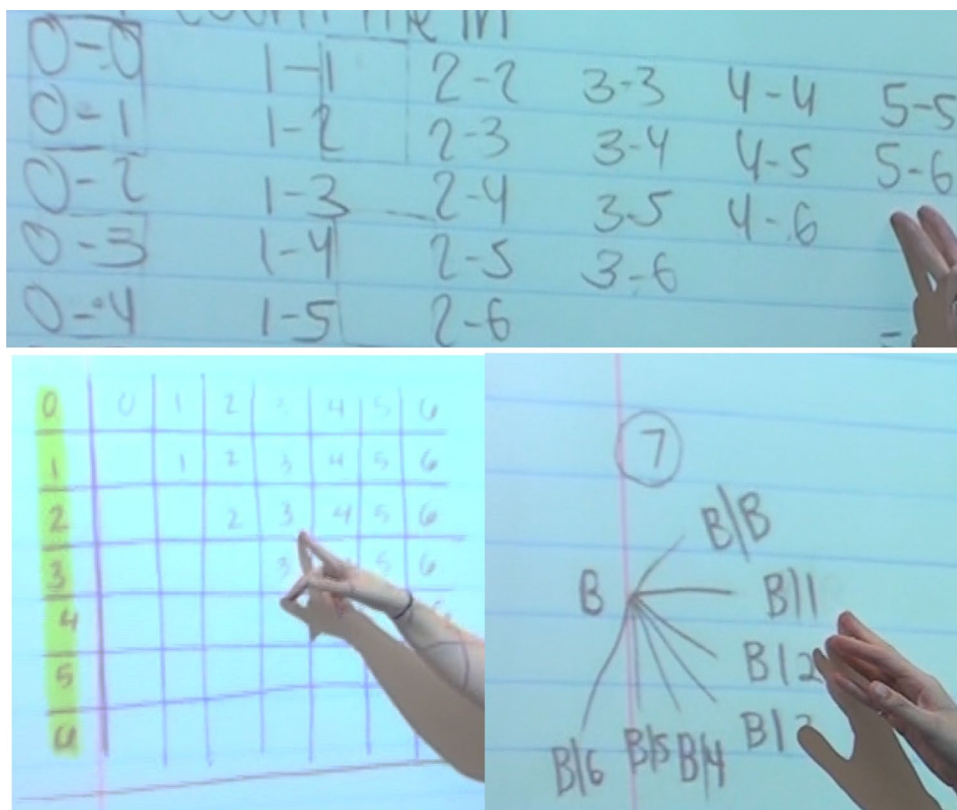 0-0 1-1 2-2 3-3 4-4 5-5
0-1 1-2 2-3 3-4 4-5 5-6
0-2 1-3 2-4 3-5 4-6
0-3 1-4 2-5 3-6
0-4 1-5 2-6
0 0 1 2 4 5 6
1 1 2 3 4 5 6
2 2 3 4 5 6
3 3 5 6
4
5
6
7
B|B
B
B|1
B|2
B|
B|6 B|5 B|4